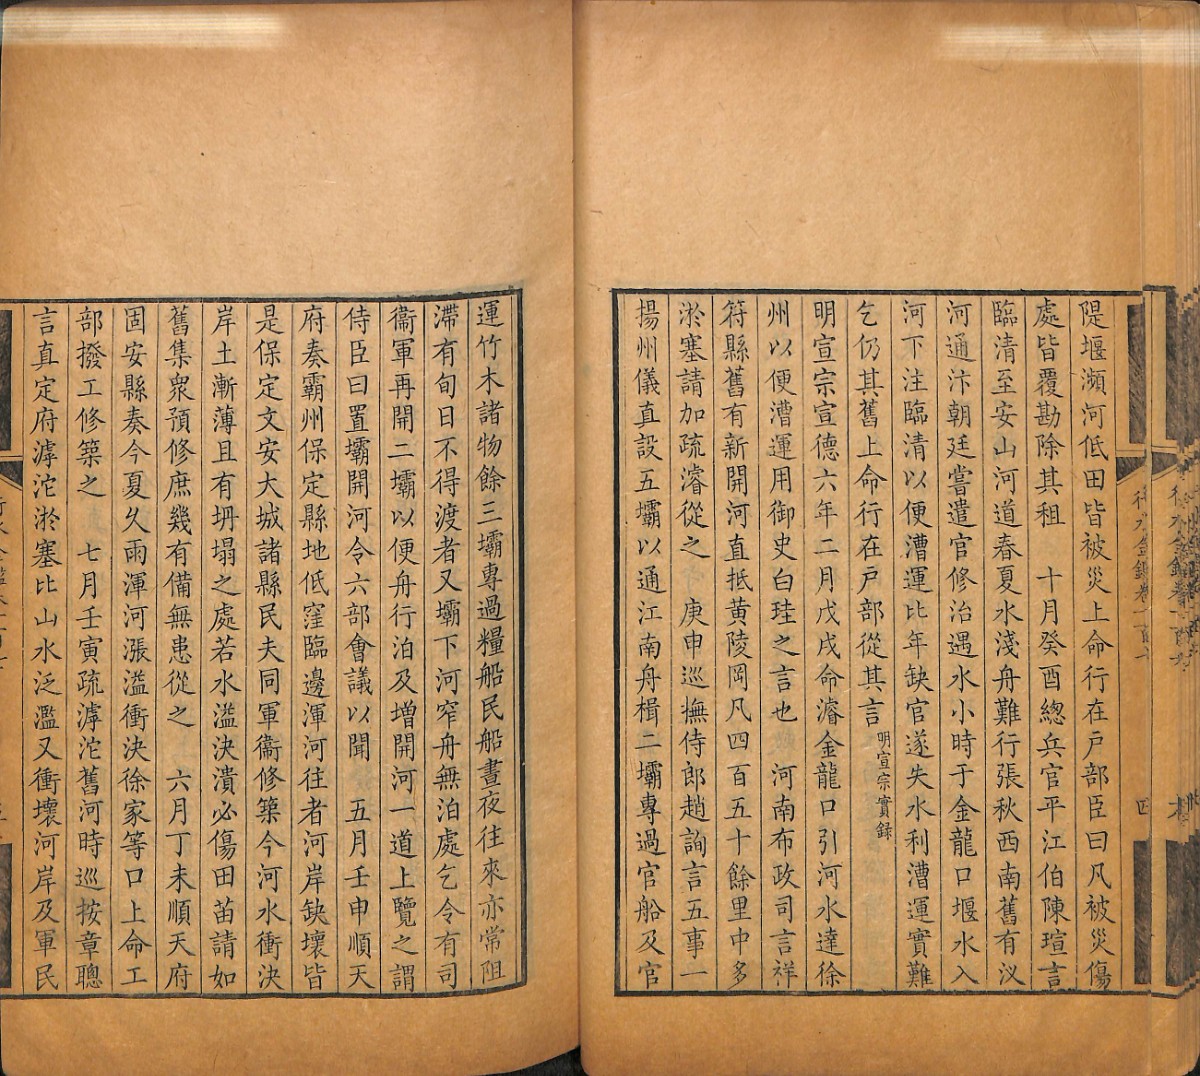 隄堰瀕河低田皆被災上命行在戸部臣曰凡被災傷
處皆覆勘除其租　十月癸酉總兵官平江伯陳瑄言
臨清至安山河道春夏水淺舟難行張秋西南舊有汊
河通汴朝廷嘗遣官修治遇水小時于金龍口堰水入
河下注臨清以便漕運比年缺官遂失水利漕運實難
乞仍其舊上命行在戸部從其言明宣宗實錄
明宣宗宣德六年二月戊戌命濬金龍口引河水達徐
州以便漕運用御史白珪之言也　河南布政司言祥
符縣舊有新開河直抵黄陵岡凡四百五十餘里中多
淤塞請加疏濬從之　庚申巡撫侍郎趙詢言五事一
揚州儀真設五壩以通江南舟楫二壩專過官船及官
運竹木諸物餘三壩專過糧船民船晝夜往來亦常阻
滯有旬日不得渡者又壩下河窄舟無泊處乞令有司
衞軍再開二壩以便舟行泊及增開河一道上覽之謂
侍臣曰置壩開河令六部會議以聞　五月壬申順天
府奏霸州保定縣地低窪臨邊渾河往者河岸缺壞皆
是保定文安大城諸縣民夫同軍衞修築今河水衝決
岸土漸薄且有坍塌之處若水溢決潰必傷田苗請如
舊集衆預修庶幾有備無患從之　六月丁未順天府
固安縣奏今夏久雨渾河漲溢衝決徐家等口上命工
部撥工修築之　七月壬寅疏滹沱舊河時巡按章聰
言真定府滹沱淤塞比山水泛濫又衝壞河岸及軍民